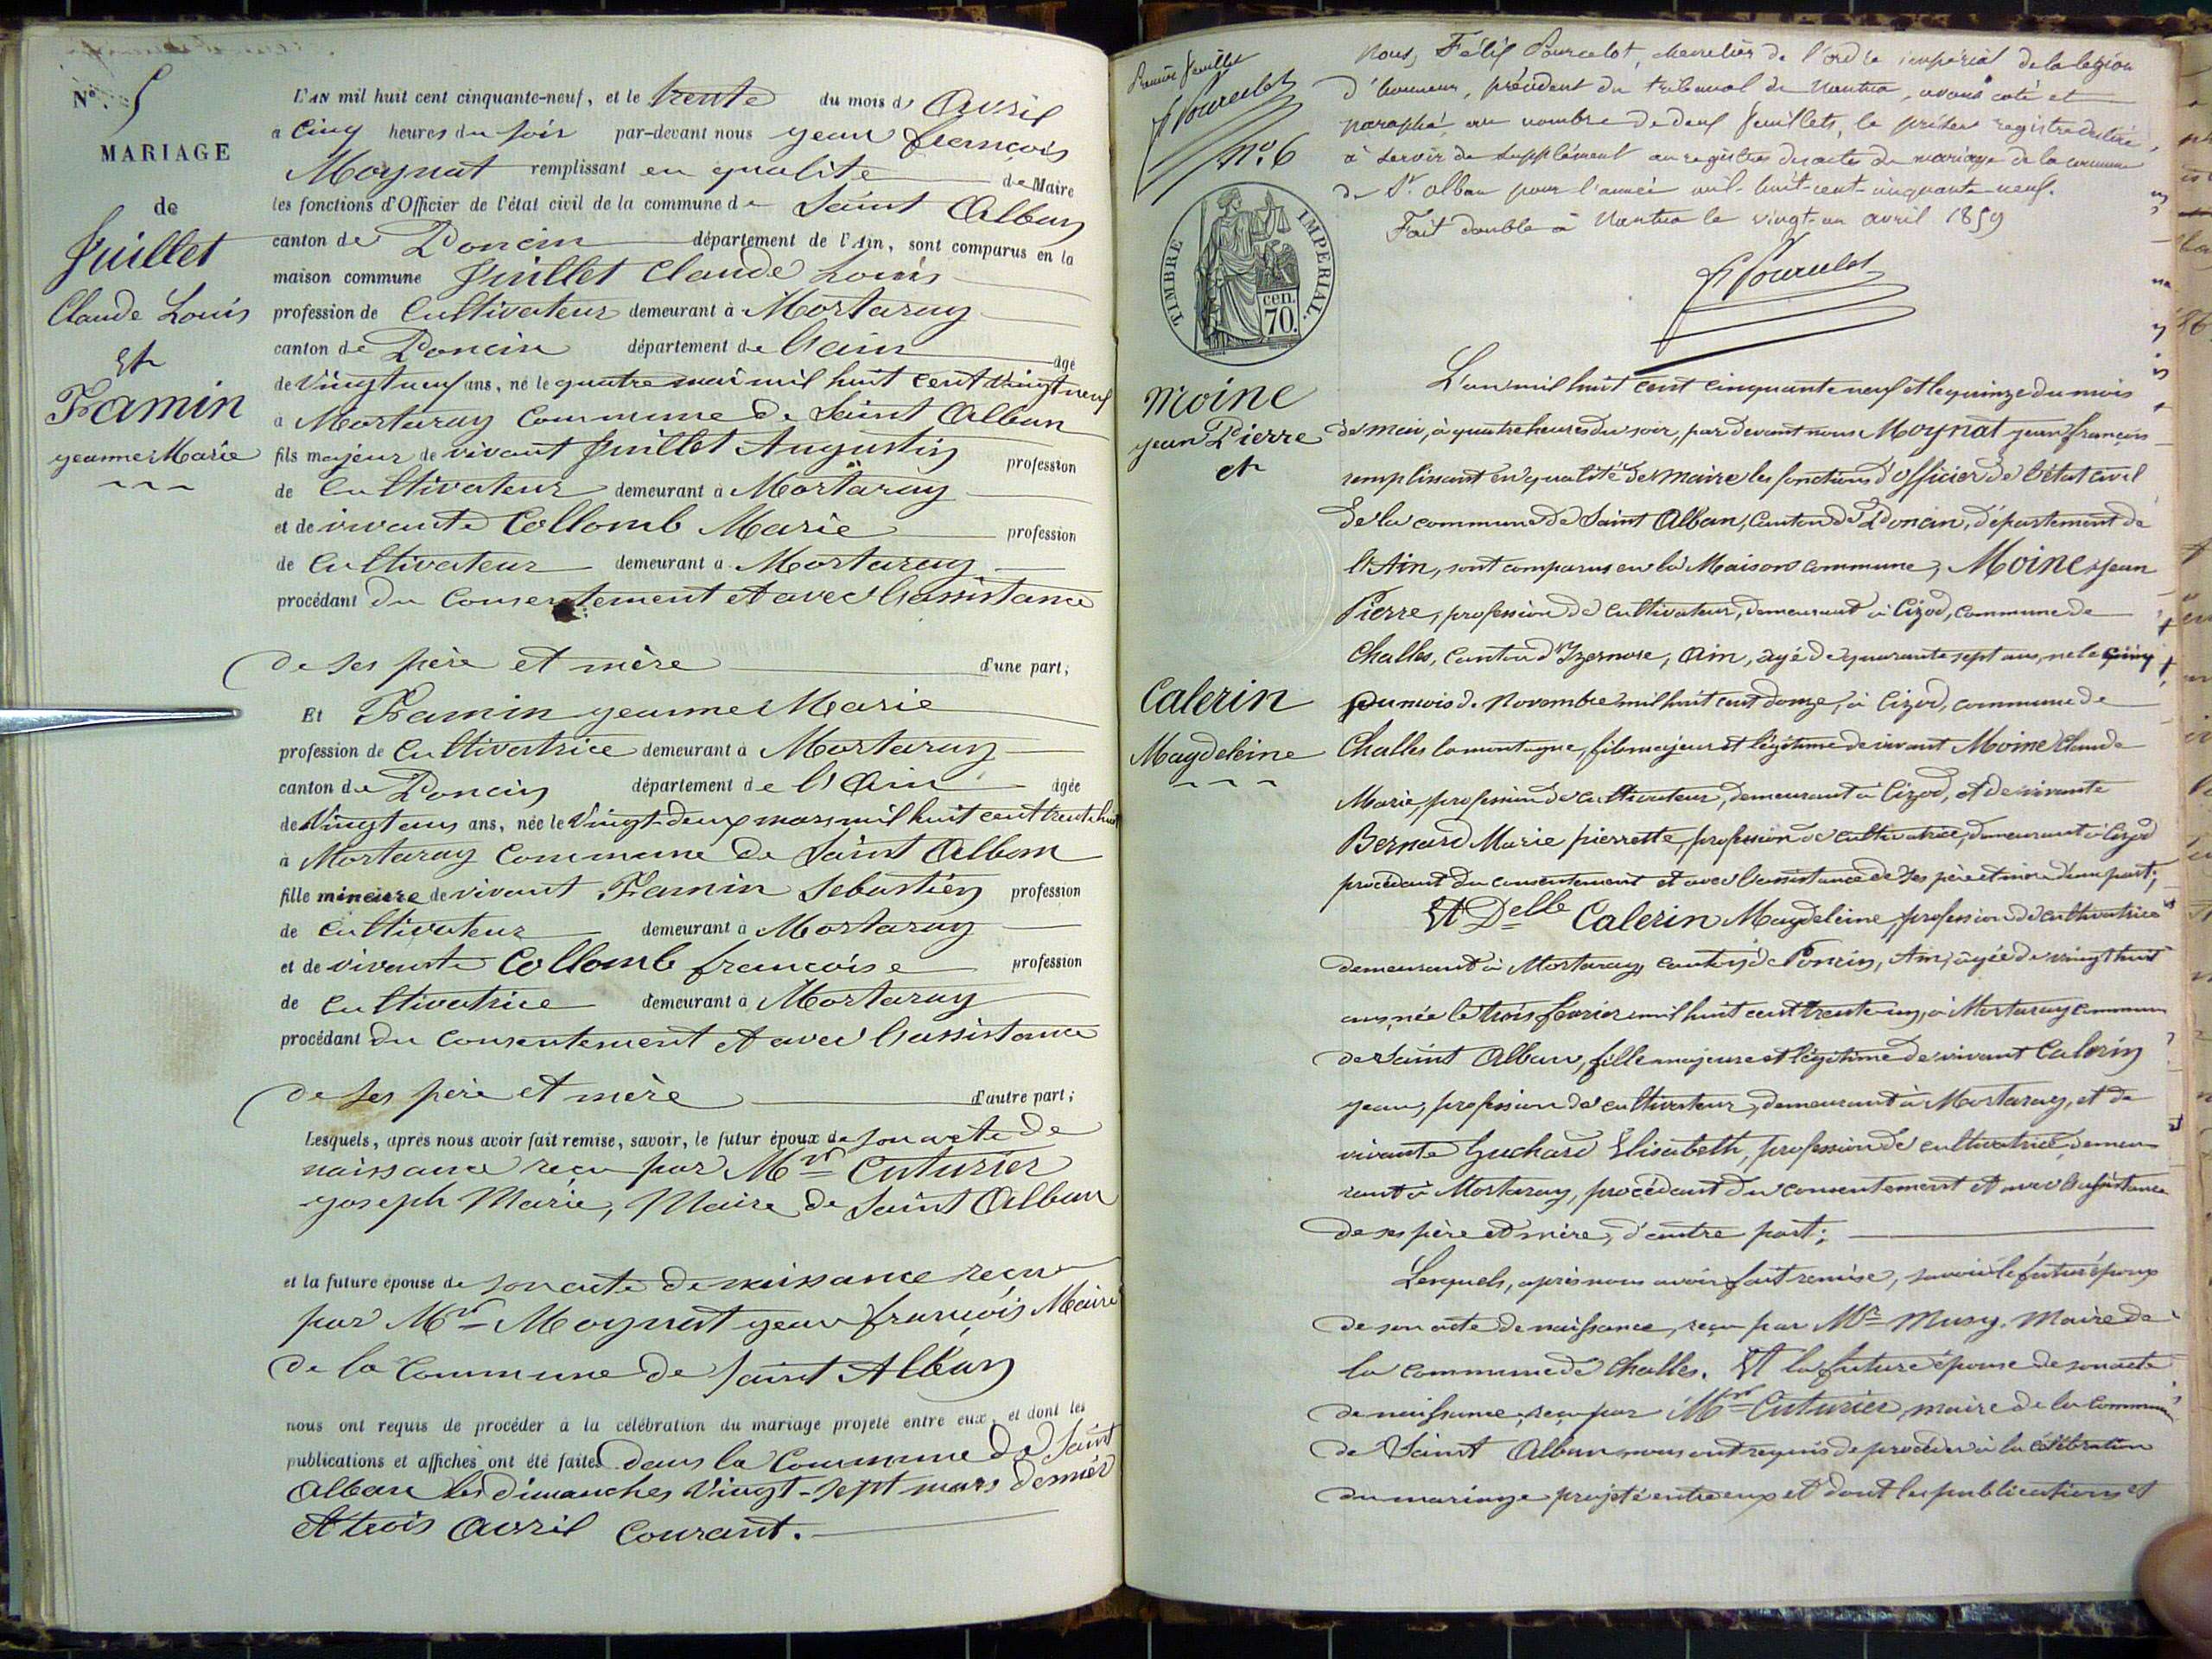 N°. 5
MARIAGE
de
Juillet
Claude Louis
et
Framin
jeanne Marie
L'AN mil huit cent cinquante-neuf, et le trente du mois d' Avril
à cinq heures du soir par-devant nous jean françois
Moynat remplissant en qualité de Maire
les fonctions d'Officier de l'état civil de la commune de Saint Alban
canton de Poncin département de l'Ain, sont comparus en la
maison commune Juillet Claude Louis
profession de Cultivateur demeurant à Mortaray
canton de Poncin département de l'ain âgé
de Vingt neuf ans, né le quatre mai mil huit cent vingt neuf
à Mortaray Commune de Saint Alban
fils majeur de vivant Juillet Augustin profession
de Cultivateur demeurant à Mortaray
et de vivante Collomb Marie profession
de Cultivateur demeurant à Mortaray
procédant du Consentement et avec l'assistance
de ses père et mère d'une part;
Et Framin jeanne Marie
profession de Cultivatrice demeurant à Mortaray
canton de Poncin département de l'Ain âgée
de Vingt ans, née le Vingt-deux mars mil huit cent trente huit
à Mortaray Commune de Saint Alban
fille mineure de vivant Framin Sebastien profession
de Cultivateur demeurant à Mortaray
et de vivante Collomb françoise profession
de Cultivatrice demeurant à Mortaray
procédant du Consentement et avec l'assistance
de ses père et mère d'autre part;
Lesquels, après nous avoir fait remise, savoir, le futur époux de son acte de
naissance reçu par Mr Cuturier
joseph Marie, Maire de Saint Alban
et la future épouse de son acte de naissance reçu
par Mr Moynat jean françois Maire
de la Commune de Saint Alban
nous ont requis de procéder à la célébration du mariage projeté entre eux, et dont les
publications et affiches ont été faites dans la Commune de Saint
Alban les dimanches Vingt-sept mars dernier
et trois Avril Courant.
Premier feuillet
F Pourcelot
N° 6
Nous, Félix Pourcelot, chevalier de l'ordre impérial de la légion
d'honneur, président du tribunal de Nantua, avons coté et
paraphé, au nombre de deux feuillets, le présent registre destiné
à servir de supplément au registre des actes de mariage de la commune
de St. Alban pour l'année mil-huit-cent-cinquante-neuf.
Fait double à Nantua le vingt-un avril 1859
F Pourcelot
TIMBRE IMPERIAL.
cen.
70.
Moine
jean Pierre
et
Calerin
Magdeleine
L'an mil huit cent cinquante neuf et le quinze du mois
de mai, à quatre heures du soir, par devant nous Moynat jean françois
remplissant en qualité de Maire les fonctions d'officier de l'état civil
de la commune de Saint Alban, Canton de Poncin, département de
l'Ain, sont comparus en la Maison commune, Moine jean
Pierre, profession de Cultivateur, demeurant à Cizod, commune de
Challes, Canton d'Izernore, Ain, agé de quarante sept ans, né le cinq
du mois de Novembre mil huit cent douze, à Cizod, commune de
Challes la montagne, fils majeur et légitime de vivant Moine Claude
Marie, profession de cultivateur, demeurant à Cizod, et de vivante
Bernard Marie pierrette, profession de cultivatrice, demeurant à Cizod
procédant du consentement et avec l'assistance de ses père et mère d'une part;
Et Delle Calerin Magdeleine, profession de cultivatrice
demeurant à Mortaray, canton de Poncin, Ain, agée de vingt huit
ans, née le trois fevrier mil huit cent trente un, à Mortaray commune
de Saint Alban, fille majeure et légitime de vivant Calerin
jean, profession de cultivateur, demeurant à Mortaray, et de
vivante Guchard Elisabeth, profession de cultivatrice, demeu
rant à Mortaray, procédant du consentement et avec l'assistance
de ses père et mère, d'autre part;
Lesquels, après nous avoir fait remise, savoir le futur époux
de son acte de naissance, reçu par Mr Musy. Maire de
la commune de Challes. Et la future épouse de son acte
de naissance, reçu par Mr Cuturier, maire de la Commune
de Saint Alban, nous ont requis de procéder à la célébration
du mariage projeté entre eux et dont les publications et